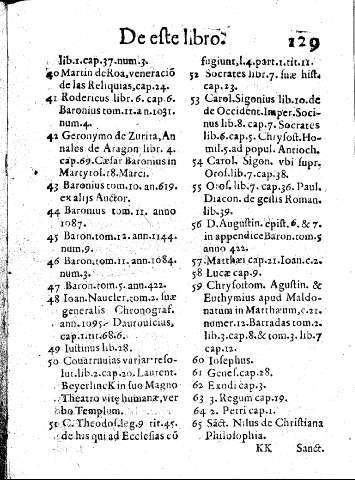 De este libro. 129
lib.1.cap.37.num.3.
40 Martin de Roa, veneraciō
de las Reliquias, cap.24.
41 Rodericus libr.6. cap.6.
Baronius tom.11.an.1031.
num.4.
42 Geronymo de Zurita, An
nales de Aragon libr. 4.
cap.69. Cæsar Baronius in
Martyrol.18.Marci.
43 Baronius tom.10. an.619.
ex alijs Auctor.
44 Baronius tom. 11. anno
1087.
45 Baron.tom.12. ann.1144.
num.9.
46 Baron.tom.11. ann.1084.
num.3.
47 Baron.tom.5. ann.422.
48 Ioan.Naucler.tom.2. suæ
generalis Chronograf.
ann.1095. Dautoulcius,
cap.1.tit.68.6.
49 Iustinus lib.28.
50 Couarruuias variar.reso-
lut.lib.2.cap.20. Laurent.
Beyerlinck in suo Magno
Theatro vitę humanæ, ver
bo Templum.
51 C. Theodos.leg.9 tit.45.
de his qui ad Ecclesias cō
fugiunt, l.4.part.1.tit.11.
52 Socrates libr.7. suæ hist.
cap.23.
53 Carol.Sigonius lib.10. de
de Occident. Imper. Soci-
nus lib.8. cap.7. Socrates
lib.6.cap.5. Chrysost. Ho-
mil.5.ad popul. Antioch.
54 Carol. Sigon. vbi supr.
Oros.lib.7.cap.38.
55 Oros.lib.7. cap.36. Paul.
Diacon. de gestis Roman.
lib.39.
56 D. Augustin. epist. 6. & 7.
in appendice Baron.tom.5
anno 422.
57 Matthæi cap.21. Ioan.c.2.
58 Lucæ cap.9.
59 Chrysostom. Agustin. &
Euthymius apud Maldo-
natum in Matthæum, c.21.
numer.12. Barradas tom.2.
lib.3.cap.8. & tom.3. lib.7
cap.12.
60 Iosephus.
61 Genes.cap.28.
62 Exodi cap.3.
63 3. Regum cap.19.
64 2. Petri cap.1.
65 Sāct. Nilus de Christiana
Philosophia.
KK Sanct.